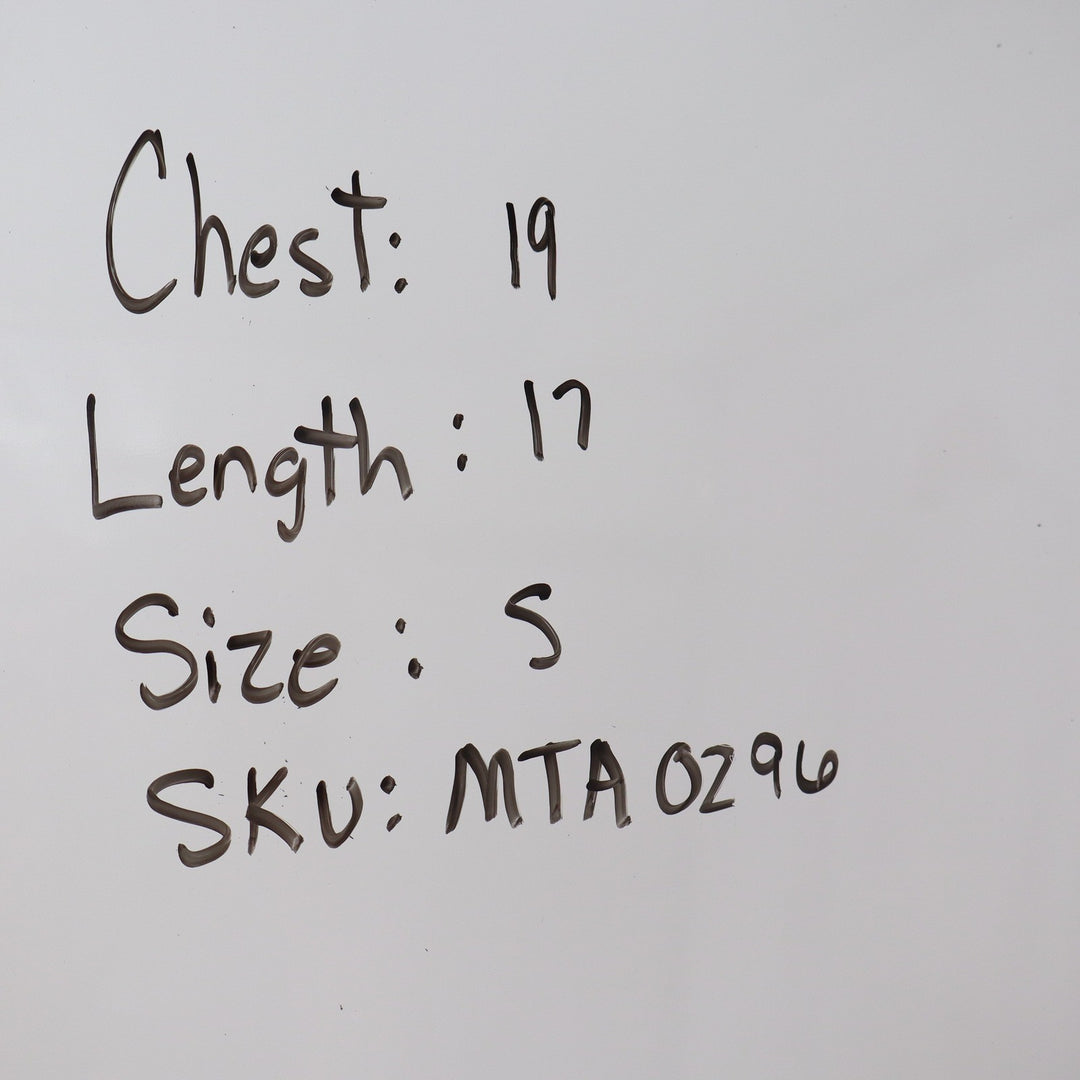 Chest: 19
Length: 17
Size: S
SKU: MTA 0296